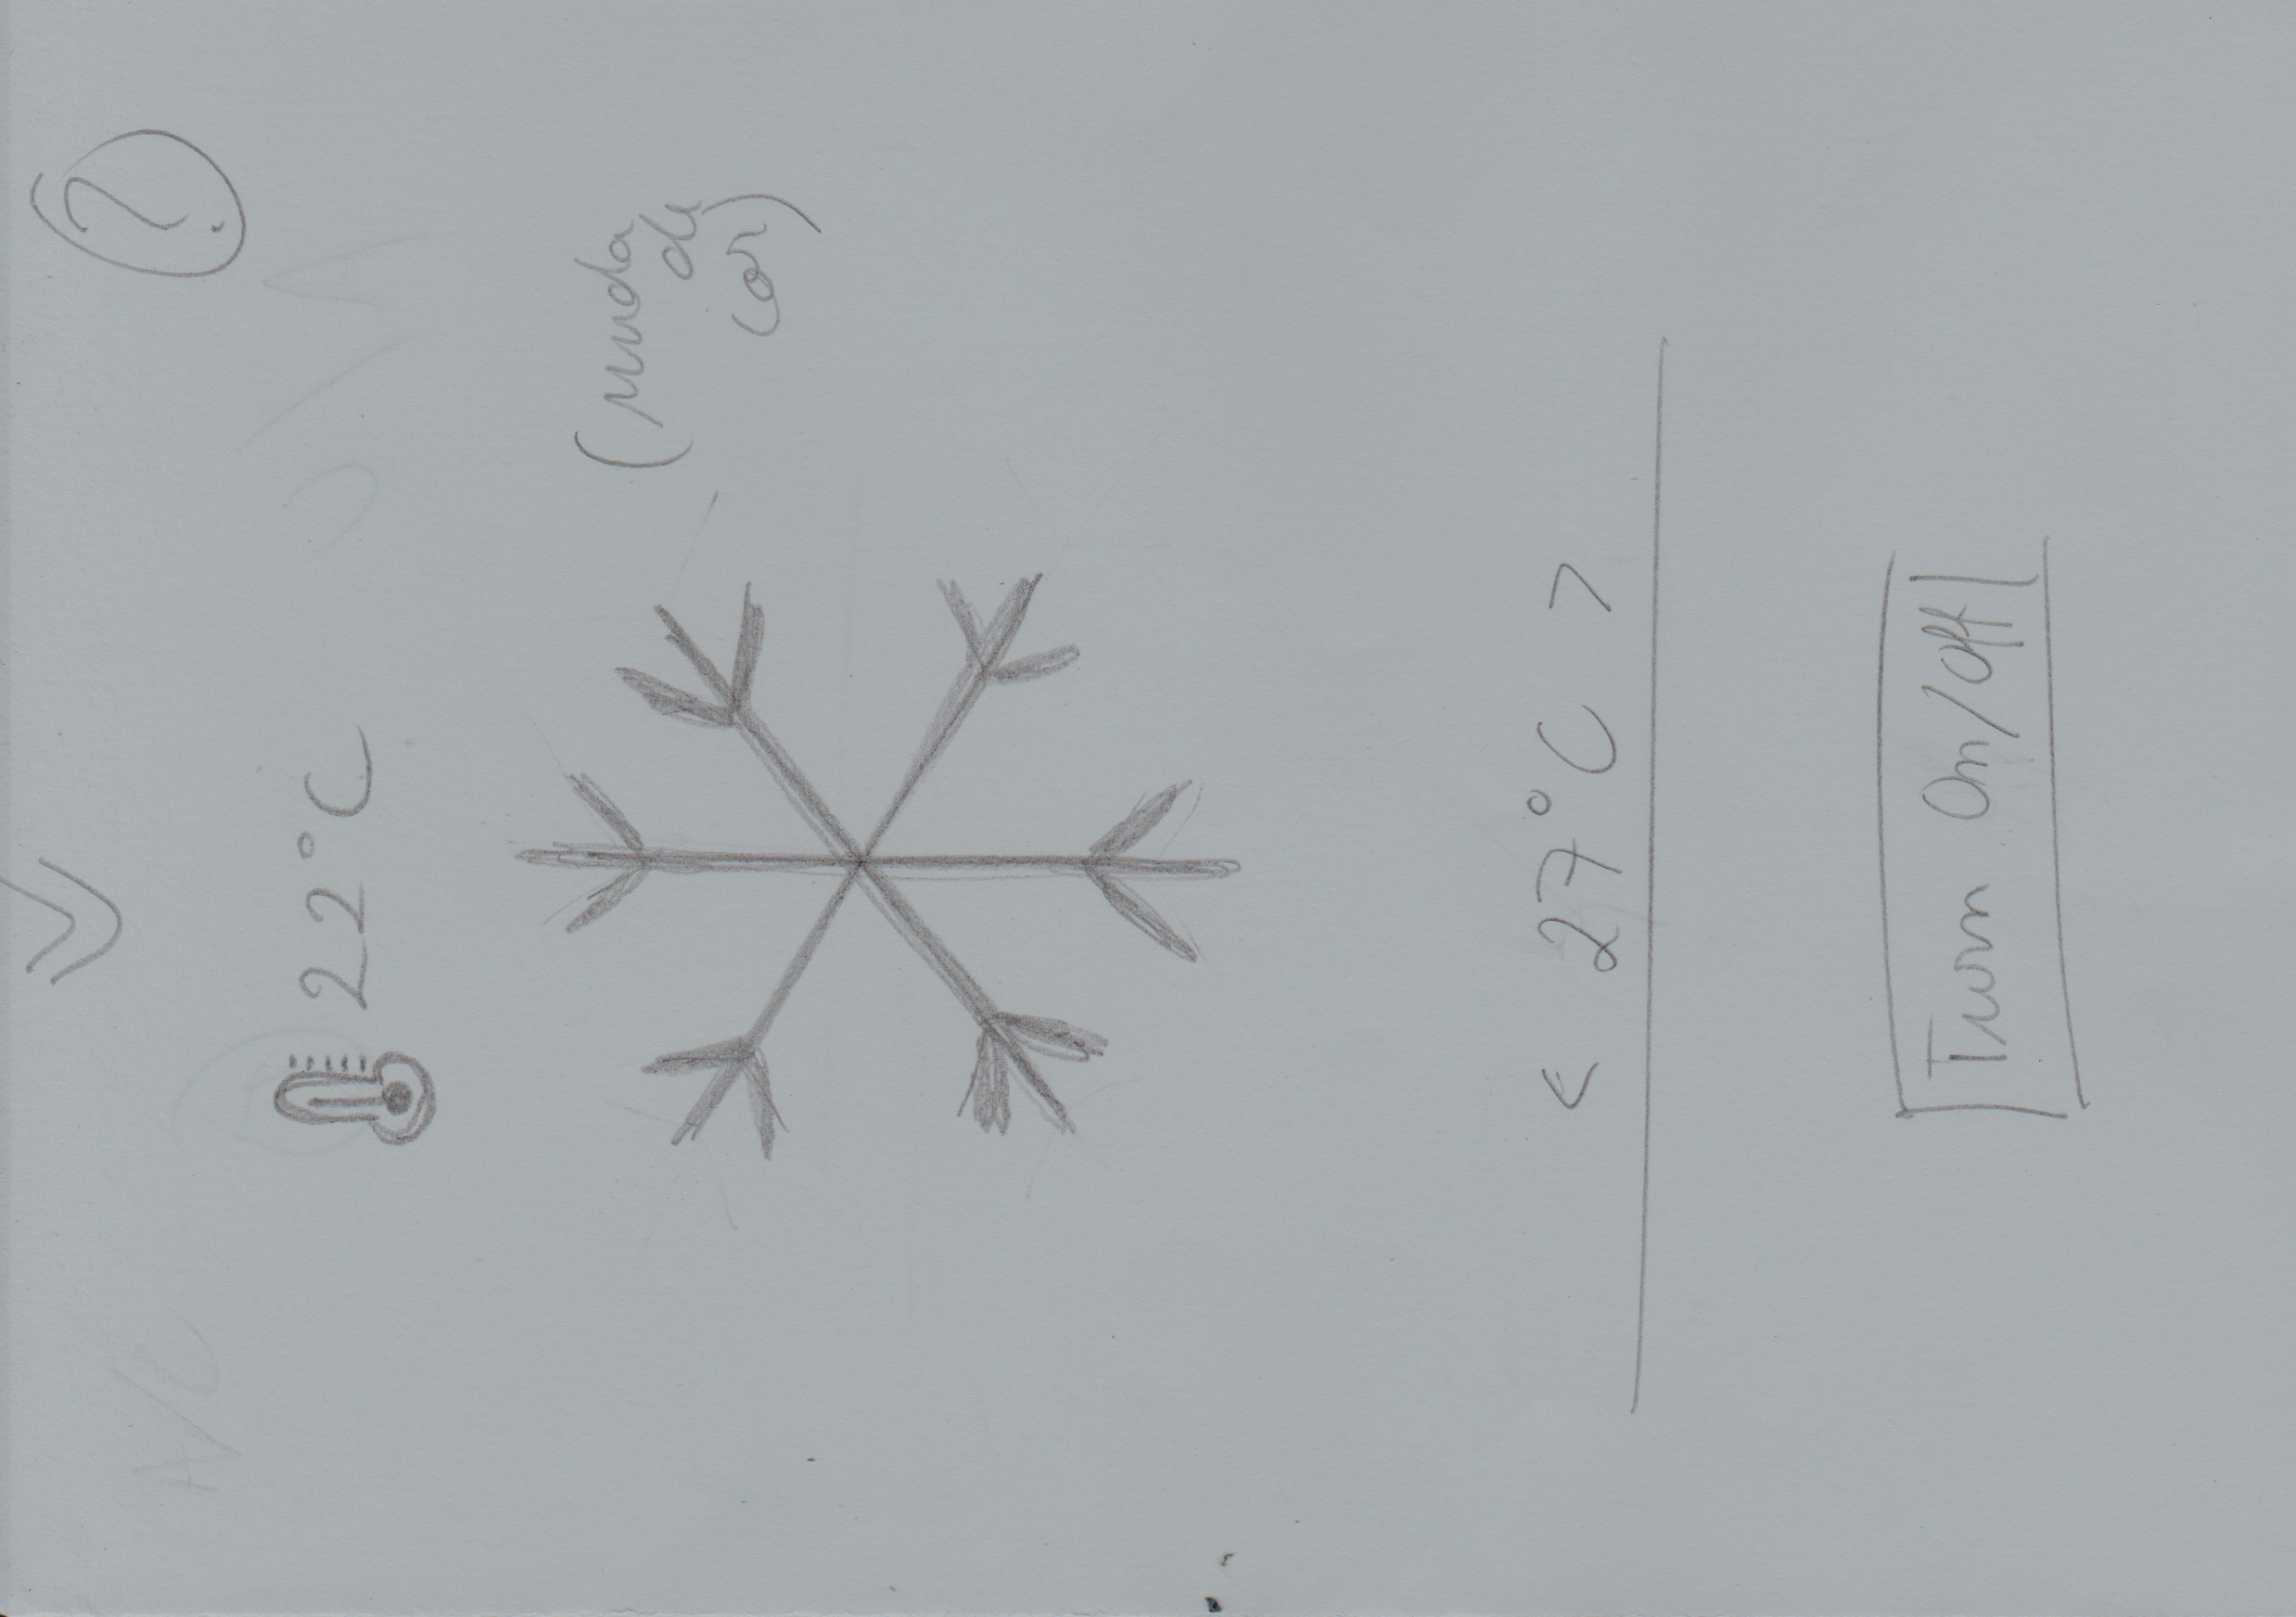 ?
A/C
22°C
(muda
de
cor)
< 27°C >
Turn On/Off